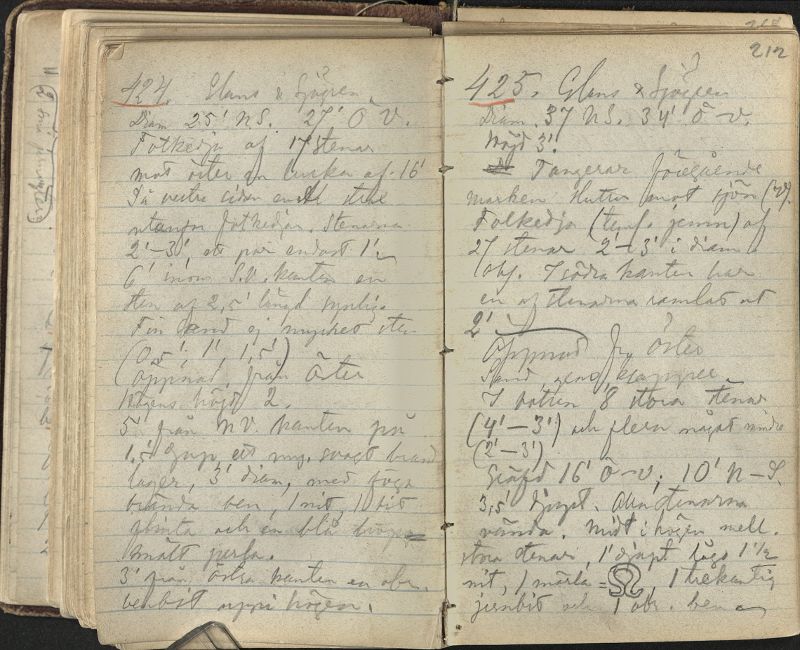 424. Glans & Sjögren.
Diam 25' N.S. 27' Ö V.
Fotkedja af 17 stenar
mot öster en lucka af 16'
På vestra sidan en sten
utanför fotkedjan. Stenarna
2'–3' ett par endast 1½
6' inom S.V. kanten en
sten af 2,5' längd synlig.
Fin sand ej mycket sten
(0,5'; 1', 1,5')
Öppnad från Öster
Högens höjd 2.
5' från N.V. kanten på
1,5' djup ett my. svagt brand
lager, 3' diam, med föga
brända ben, 1 nit, 1 bit
flinta och en blå
smält perla.
3' från östra kanten en obr.
benbit uppi högen.
212
425. Glans & Sjögren
Diam. 37 N.S. 34' Ö–V.
Höjd 3'.
Tangerar föregående
marken sluttar mot sjön (V).
Fotkedja (temf. jemn) af
27 stenar 2–3' i diam
(obs. I södra kanten har
en af stenarna ramlat ut
2'
Öppnad fr. Öster
Sand,
I botten 8 stora stenar
(4'–3') och flera något mindre
(2'–3')
16' Ö–V; 10' N–S.
3,5' djupt. stenarna
Midt i högen mell.
stora stenar, 1' djupt lågo 1½
nit, 1 märla = 1 trekantig
jernbit och 1 obr. ben